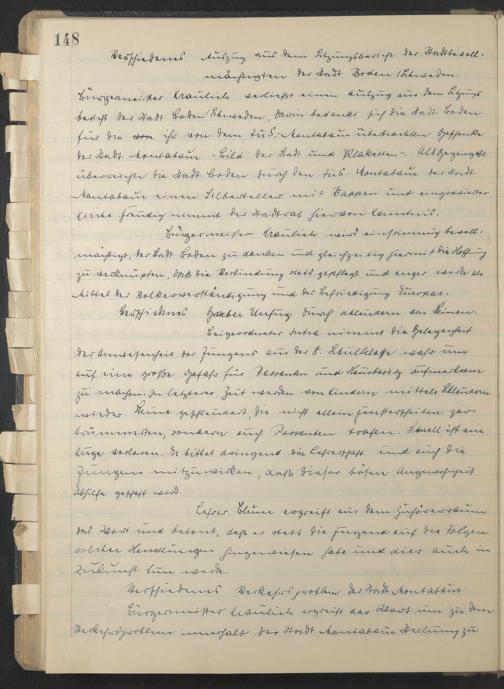 148
Verschiedenes Auszug aus dem Sitzungsbericht der Stadtbevoll-
mächtigten der Stadt Boden/Schweden.
Bürgermeister Kraulich verliest einen Auszug aus dem Sitzungs
bericht der Stadt Boden/Schweden, darin bedankt sich die Stadt Boden
für die von ihr von dem TuS.-Montabaur überbrachten Geschenke
der Stadt Montabaur - Bild der Stadt und Plaketten -. Als Gegengabe
überreichte die Stadt Boden durch den TuS Montabaur der Stadt
Montabaur einen Silberteller mit Wappen und eingravierter
freudig nimmt der Stadtrat hiervon Kenntnis.
Bürgermeister Kraulich wird einstimmig bevoll-
mächtigt, der Stadt Boden zu danken und gleichzeitig hiermit die Hoffnung
zu verknüpfen, daß die Verbindung stets gepflegt und enger werde als
Mittel der Völkerverständigung und der Befriedigung Europas.
Verschiedenes Grober Unfug durch Schleudern von Steinen.
Beigeordneter nimmt die Gelegenheit
der Anwesenheit der Jungens aus der 8. Schulklasse wahr um
auf eine große Gefahr für Passanten und Hausbesitz aufmerksam
zu machen. In letzterer Zeit werden von Kindern mittels Schleudern
wieder Steine geschleudert, die nicht allein Fensterscheiben zer-
trümmerten, sondern auch Passanten trafen. Schnell ist ein
Auge verloren. Er bittet dringend die Lehrerschaft und auch die
Jungens mitzuwirken, daß dieser bösen Angewohnheit
Abhilfe geschafft wird.
Lehrer Blum ergreift aus dem Zuhörerraum
das Wort und betont, daß er stets die Jugend auf die Folgen
solcher Handlungen hingewiesen habe und dies auch in
Zukunft tun werde.
Verschiedenes Verkehrsproblem der Stadt Montabaur
Bürgermeister Kraulich ergreift das Wort um zu dem
Verkehrsproblem innerhalb der Stadt Montabaur Stellung zu